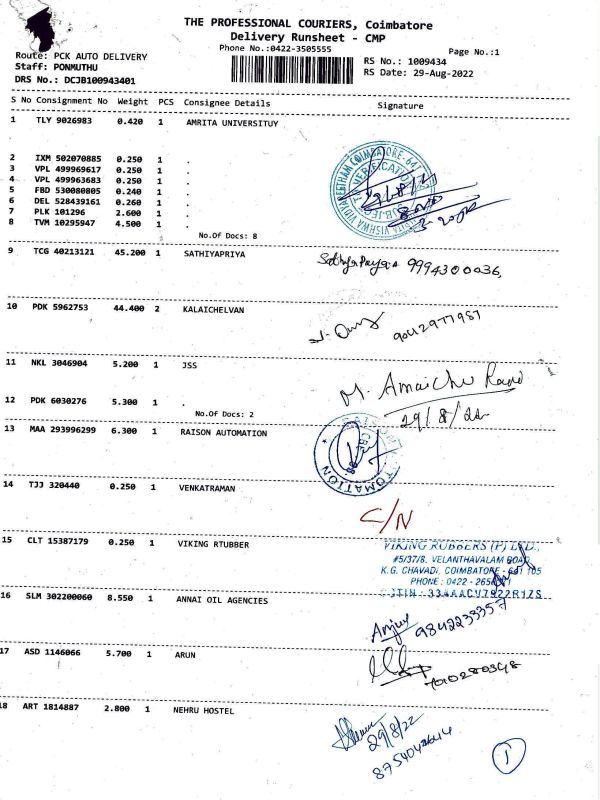 THE PROFESSIONAL COURIERS, Coimbatore
Delivery Runsheet - CMP
Phone No.:0422-3505555
Page No.:1
Route: PCK AUTO DELIVERY
Staff: PONMUTHU
DRS No.: DCJB100943401
RS No.: 1009434
RS Date: 29-Aug-2022
S No Consignment No Weight PCS Consignee Details Signature
1 TLY 9026983 0.420 1 AMRITA UNIVERSITUY
2 IXM 502070885 0.250 1 .
3 VPL 499969617 0.250 1 .
4 VPL 499963683 0.250 1 .
5 FBD 530080805 0.240 1 .
6 DEL 528439161 0.260 1 .
7 PLK 101296 2.600 1 .
8 TVM 10295947 4.500 1 .
No.Of Docs: 8
9 TCG 40213121 45.200 1 SATHIYAPRIYA
9994300036,
10 PDK 5962753 44.400 2 KALAICHELVAN
9042977987
11 NKL 3046904 5.200 1 JSS
M.
12 PDK 6030276 5.300 1 .
29/8/22
No.Of Docs: 2
13 MAA 293996299 6.300 1 RAISON AUTOMATION
14 TJJ 320440 0.250 1 VENKATRAMAN
C/N
15 CLT 15387179 0.250 1 VIKING RTUBBER
VIKING RUBBERS (P) LTD.,
#5/37/8, VELANTHAVALAM ROAD
K.G. CHAVADI, COIMBATORE - 641 105
PHONE : 0422 -
16 SLM 302200060 8.550 1 ANNAI OIL AGENCIES
9842233357
17 ASD 1146066 5.700 1 ARUN
18 ART 1814887 2.800 1 NEHRU HOSTEL
29/8/22
1